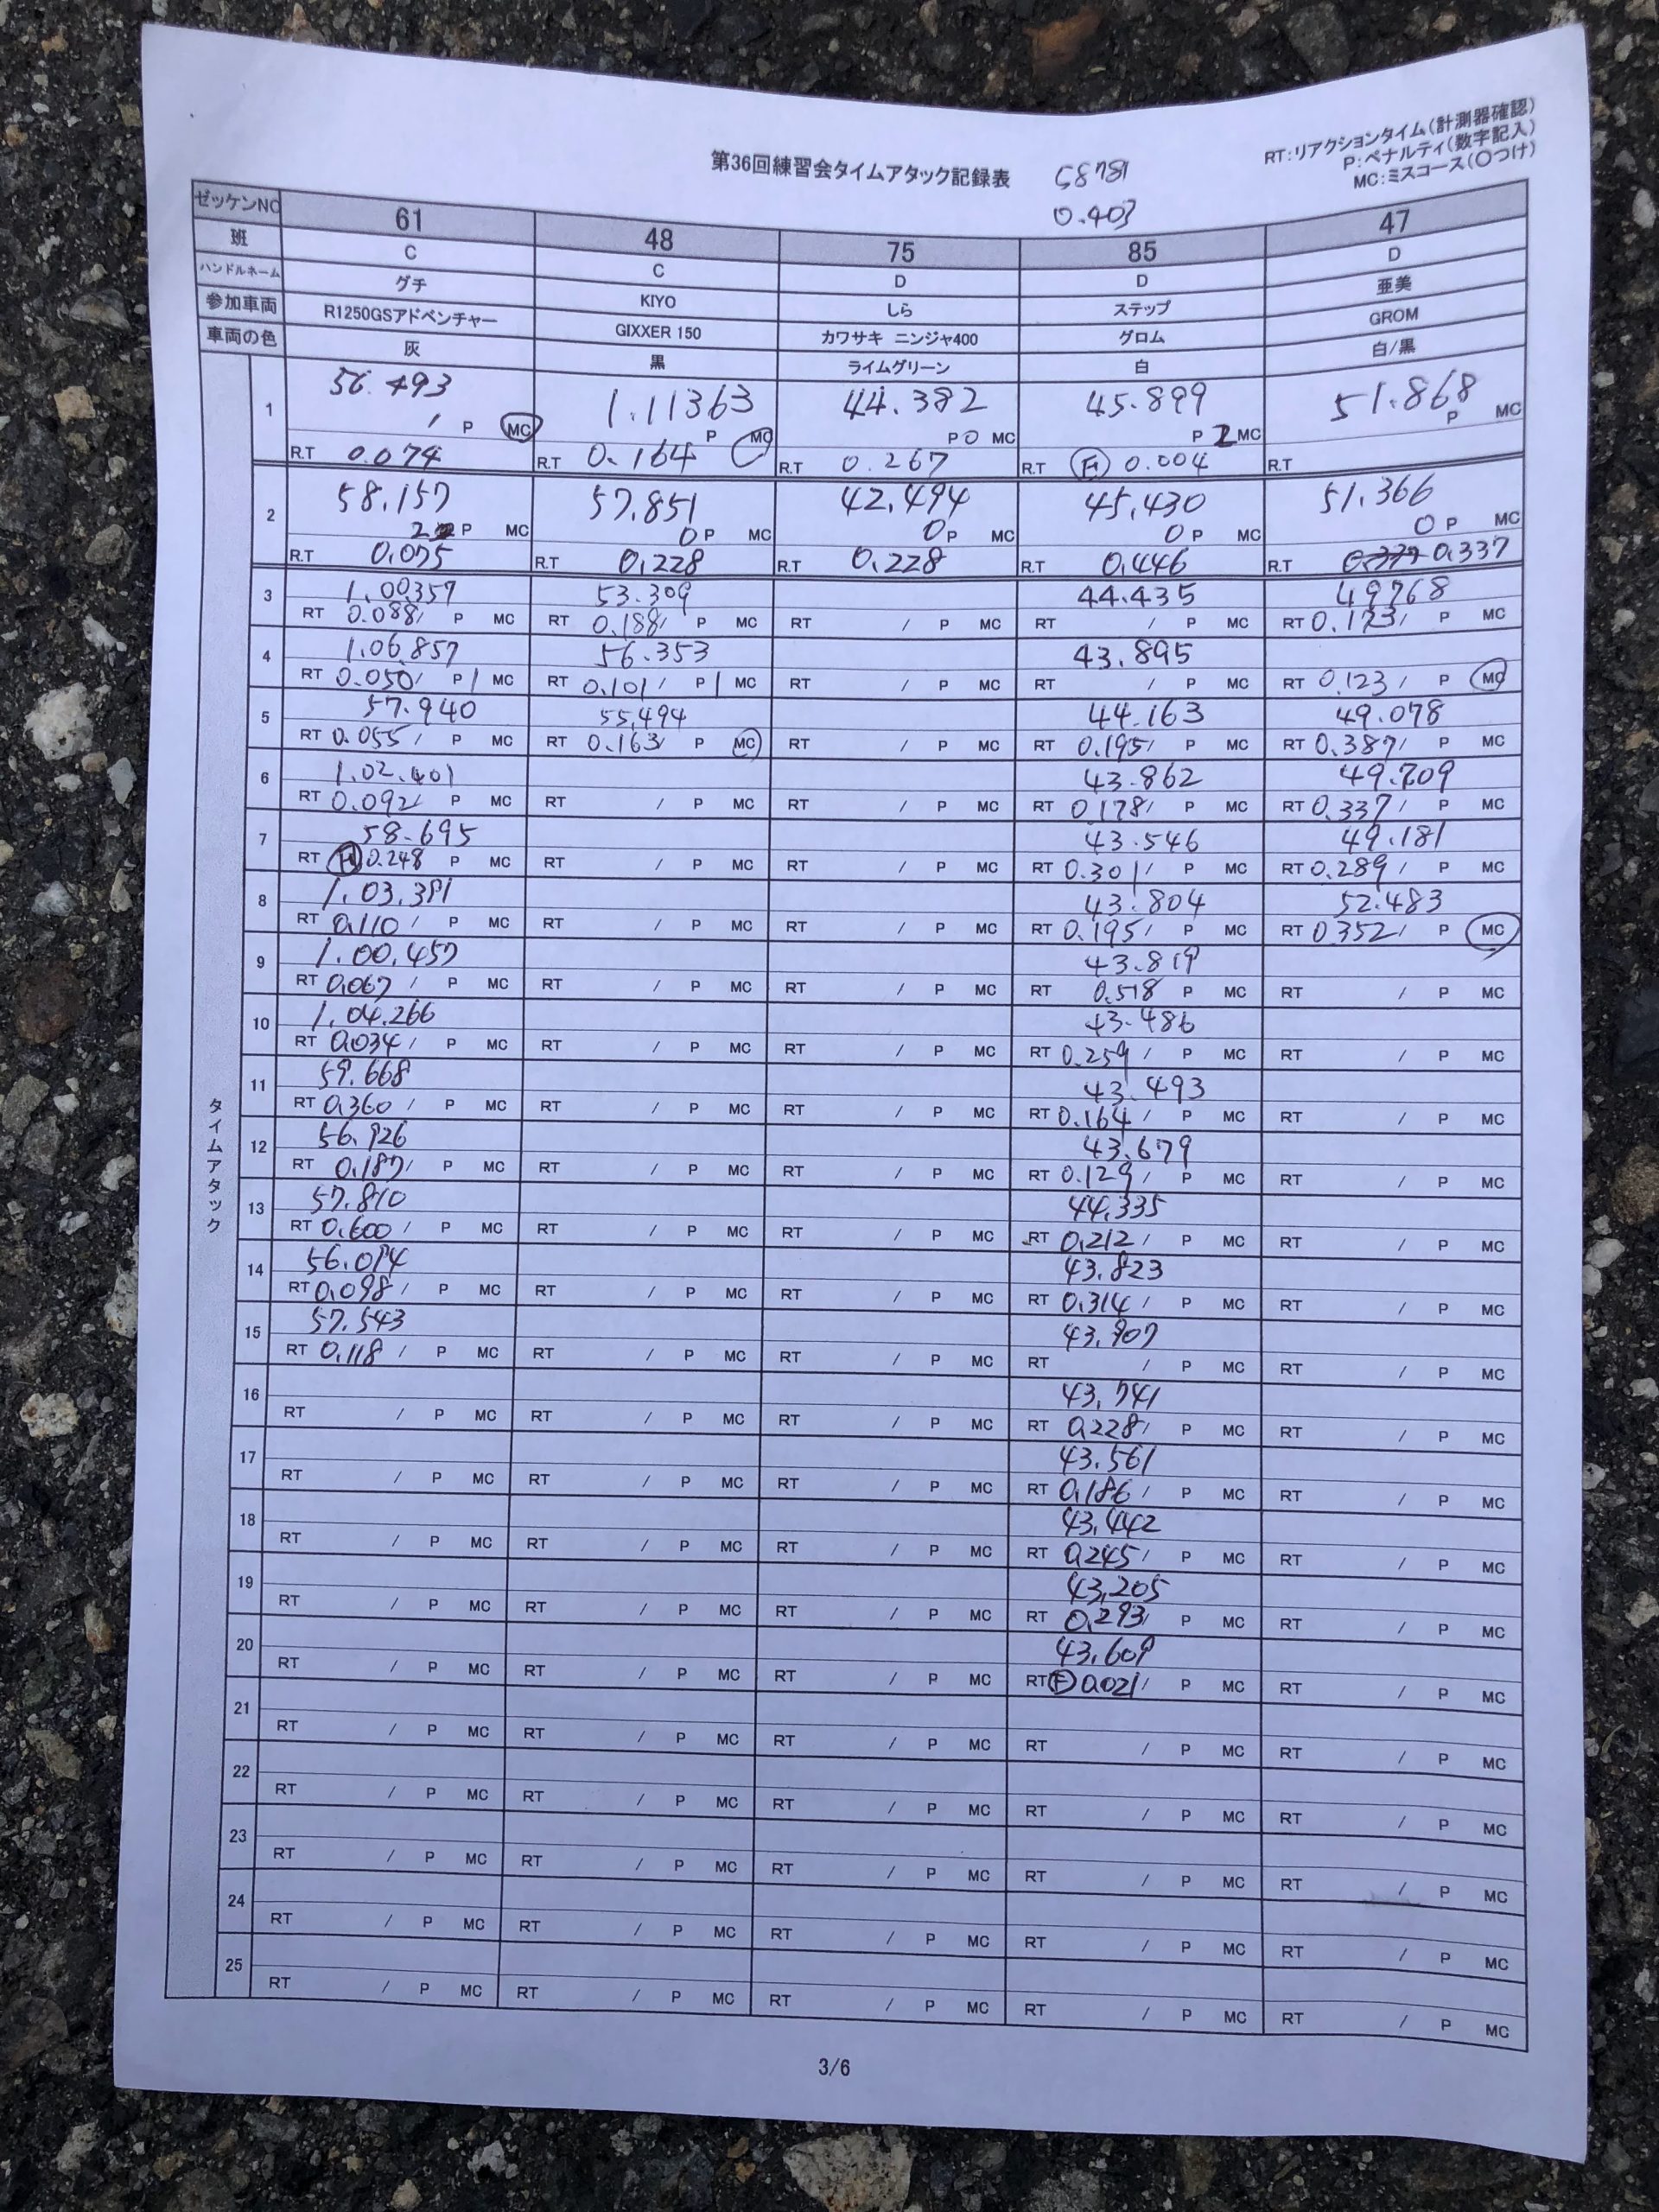 第36回練習会タイムアタック記録表
58781
0.403
RT:リアクションタイム(計測器確認)
P:ペナルティ(数字記入)
MC:ミスコース(○つけ)
ゼッケンNO 61 48 75 85 47
班 C C D D D
ハンドルネーム グチ KIYO しら ステップ 亜美
参加車両 R1250GSアドベンチャー GIXXER 150 カワサキ ニンジャ400 グロム GROM
車両の色 灰 黒 ライムグリーン 白 白/黒
タイムアタック
1 56.493 1.11363 44.382 45.899 51.868
1 P MC P MC P 0 MC P 2 MC P MC
R.T 0.074 R.T 0.164 R.T 0.267 R.T F 0.004 R.T
2 58.157 57.851 42.494 45.430 51.366
2 P MC 0 P MC 0 P MC 0 P MC 0 P MC
R.T 0.075 R.T 0.228 R.T 0.228 R.T 0.446 R.T 0.337
3 1.00.357 53.309 44.435 49768
RT 0.088 / P MC RT 0.188 / P MC RT / P MC RT / P MC RT 0.173 / P MC
4 1.06.857 56.353 43.895
RT 0.050 / P 1 MC RT 0.101 / P 1 MC RT / P MC RT / P MC RT 0.123 / P MC
5 57.940 55.494 44.163 49.078
RT 0.055 / P MC RT 0.163 / P MC RT / P MC RT 0.195 / P MC RT 0.387 / P MC
6 1.02.401 43.862 49.209
RT 0.092 / P MC RT / P MC RT / P MC RT 0.178 / P MC RT 0.337 / P MC
7 58.695 43.546 49.181
RT F 0.248 P MC RT / P MC RT / P MC RT 0.301 / P MC RT 0.289 / P MC
8 1.03.391 43.804 52.483
RT 0.110 / P MC RT / P MC RT / P MC RT 0.195 / P MC RT 0.352 / P MC
9 1.00.457 43.819
RT 0.067 / P MC RT / P MC RT / P MC RT 0.518 P MC RT / P MC
10 1.04.266 43.486
RT 0.034 / P MC RT / P MC RT / P MC RT 0.259 / P MC RT / P MC
11 59.668 43.493
RT 0.360 / P MC RT / P MC RT / P MC RT 0.164 / P MC RT / P MC
12 56.926 43.679
RT 0.187 / P MC RT / P MC RT / P MC RT 0.129 / P MC RT / P MC
13 57.810 44.335
RT 0.600 / P MC RT / P MC RT / P MC RT 0.212 / P MC RT / P MC
14 56.094 43.823
RT 0.098 / P MC RT / P MC RT / P MC RT 0.314 / P MC RT / P MC
15 57.543 43.907
RT 0.118 / P MC RT / P MC RT / P MC RT / P MC RT / P MC
16 43.741
RT / P MC RT / P MC RT / P MC RT 0.228 / P MC RT / P MC
17 43.561
RT / P MC RT / P MC RT / P MC RT 0.186 / P MC RT / P MC
18 43.442
RT / P MC RT / P MC RT / P MC RT 0.245 / P MC RT / P MC
19 43.205
RT / P MC RT / P MC RT / P MC RT 0.293 / P MC RT / P MC
20 43.609
RT / P MC RT / P MC RT / P MC RT F 0.021 / P MC RT / P MC
21
RT / P MC RT / P MC RT / P MC RT / P MC RT / P MC
22
RT / P MC RT / P MC RT / P MC RT / P MC RT / P MC
23
RT / P MC RT / P MC RT / P MC RT / P MC RT / P MC
24
RT / P MC RT / P MC RT / P MC RT / P MC RT / P MC
25
RT / P MC RT / P MC RT / P MC RT / P MC RT / P MC
3/6